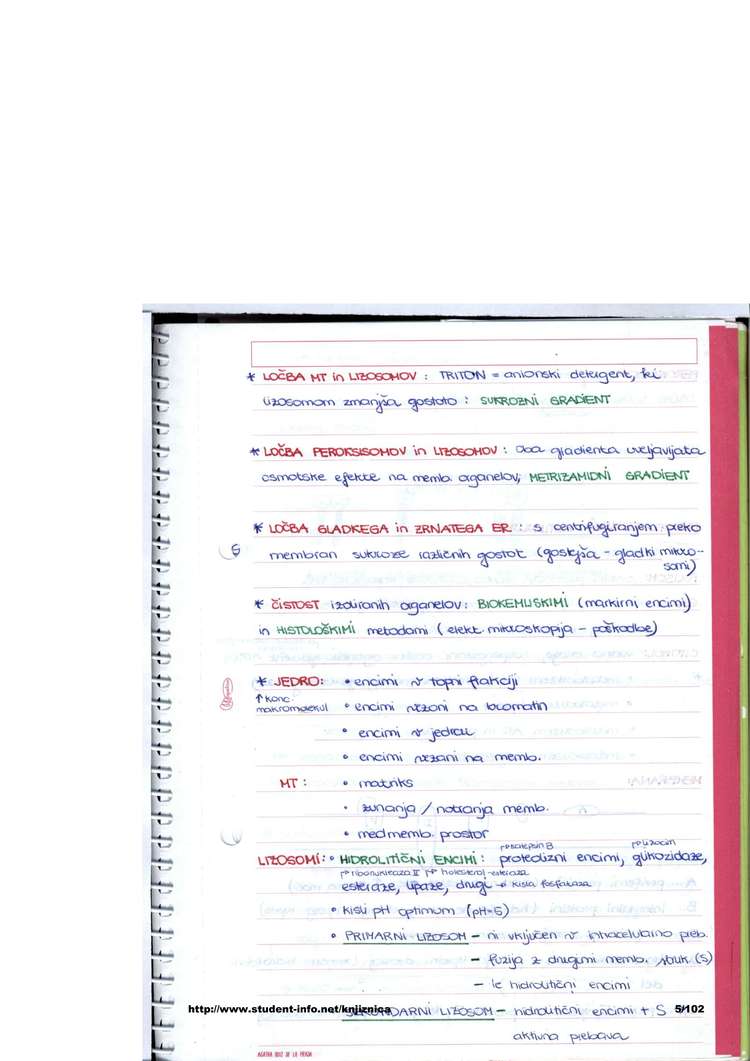 * LOČBA MT in LIZOSOMOV : TRITON = anionski detergent, ki
lizosomom zmanjša gostoto : SUKROZNI GRADIENT
* LOČBA PEROKSISOMOV in LIZOSOMOV : oba gradienta uveljavljata
osmotske efekte na memb. organelov, METRIZAMIDNI GRADIENT
* LOČBA GLADKEGA in ZRNATEGA ER : s centrifugiranjem preko
membran sukroze različnih gostot (gostejša - gladki mikro-
somi)
* ČISTOST izoliranih organelov: BIOKEMIJSKIMI (markirni encimi)
in HISTOLOŠKIMI metodami (elekt. mikroskopija - poškodbe)
* JEDRO: • encimi v topni frakciji
↑ konc. makromolekul • encimi vezani na kromatin
• encimi v jedrcu
• encimi vezani na memb.
MT : • matriks
• zunanja / notranja memb.
• medmemb. prostor
→ katepsin B
LIZOSOMI: • HIDROLITIČNI ENCIMI : proteolizni encimi, glikozidaze,
→ ribonukleaza II → holesterol-esteraza
esteraze, lipaze, drugi → kisla fosfataza
• kisli pH optimum (pH=5)
• PRIMARNI LIZOSOM - ni vključen v intracelularno preb.
- fuzija z drugimi memb. struk. (S)
- le hidrolitični encimi
http://www.student-info.net/knjiznica 5/102
SEKUNDARNI LIZOSOM - hidrolitični encimi + S
aktivna prebava
AGATHA RUIZ DE LA PRADA